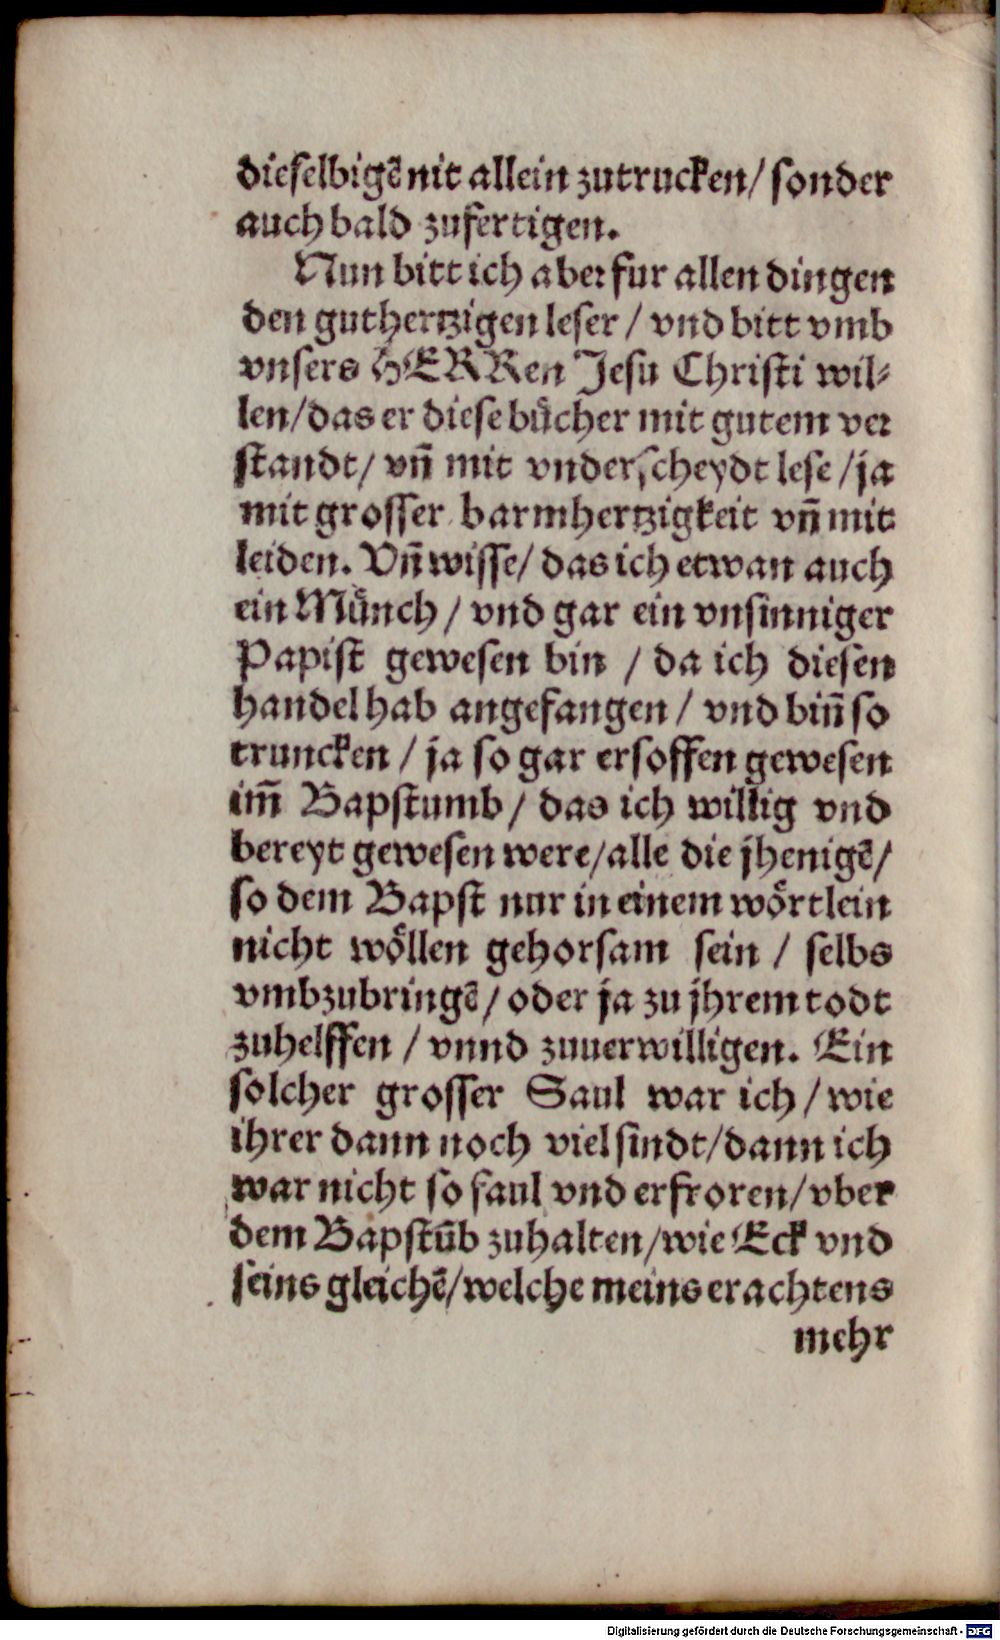 dieselbigē nit allein zutrucken/ sonder
auch bald zufertigen.
Nun bitt ich aber fur allen dingen
den guthertzigen leser / vnd bitt vmb
vnsers HERRen Jesu Christi wil⸗
len/ das er diese bücher mit gutem ver
standt/ vñ mit vnderscheydt lese / ja
mit grosser barmhertzigkeit vñ mit
leiden. Vñ wisse/ das ich etwan auch
ein Münch / vnd gar ein vnsinniger
Papist gewesen bin / da ich diesen
handel hab angefangen / vnd biñ so
truncken / ja so gar ersoffen gewesen
im̄ Bapstumb / das ich willig vnd
bereyt gewesen were/ alle die jhenigē/
so dem Bapst nur in einem wörtlein
nicht wöllen gehorsam sein / selbs
vmbzubringē/ oder ja zu jhrem todt
zuhelffen / vnnd zuuerwilligen. Ein
solcher grosser Saul war ich / wie
ihrer dann noch viel sindt/ dann ich
war nicht so faul vnd erfroren/ vber
dem Bapstūb zuhalten/ wie Eck vnd
seins gleichē/ welche meins erachtens
mehr
Digitalisierung gefördert durch die Deutsche Forschungsgemeinschaft - DFG